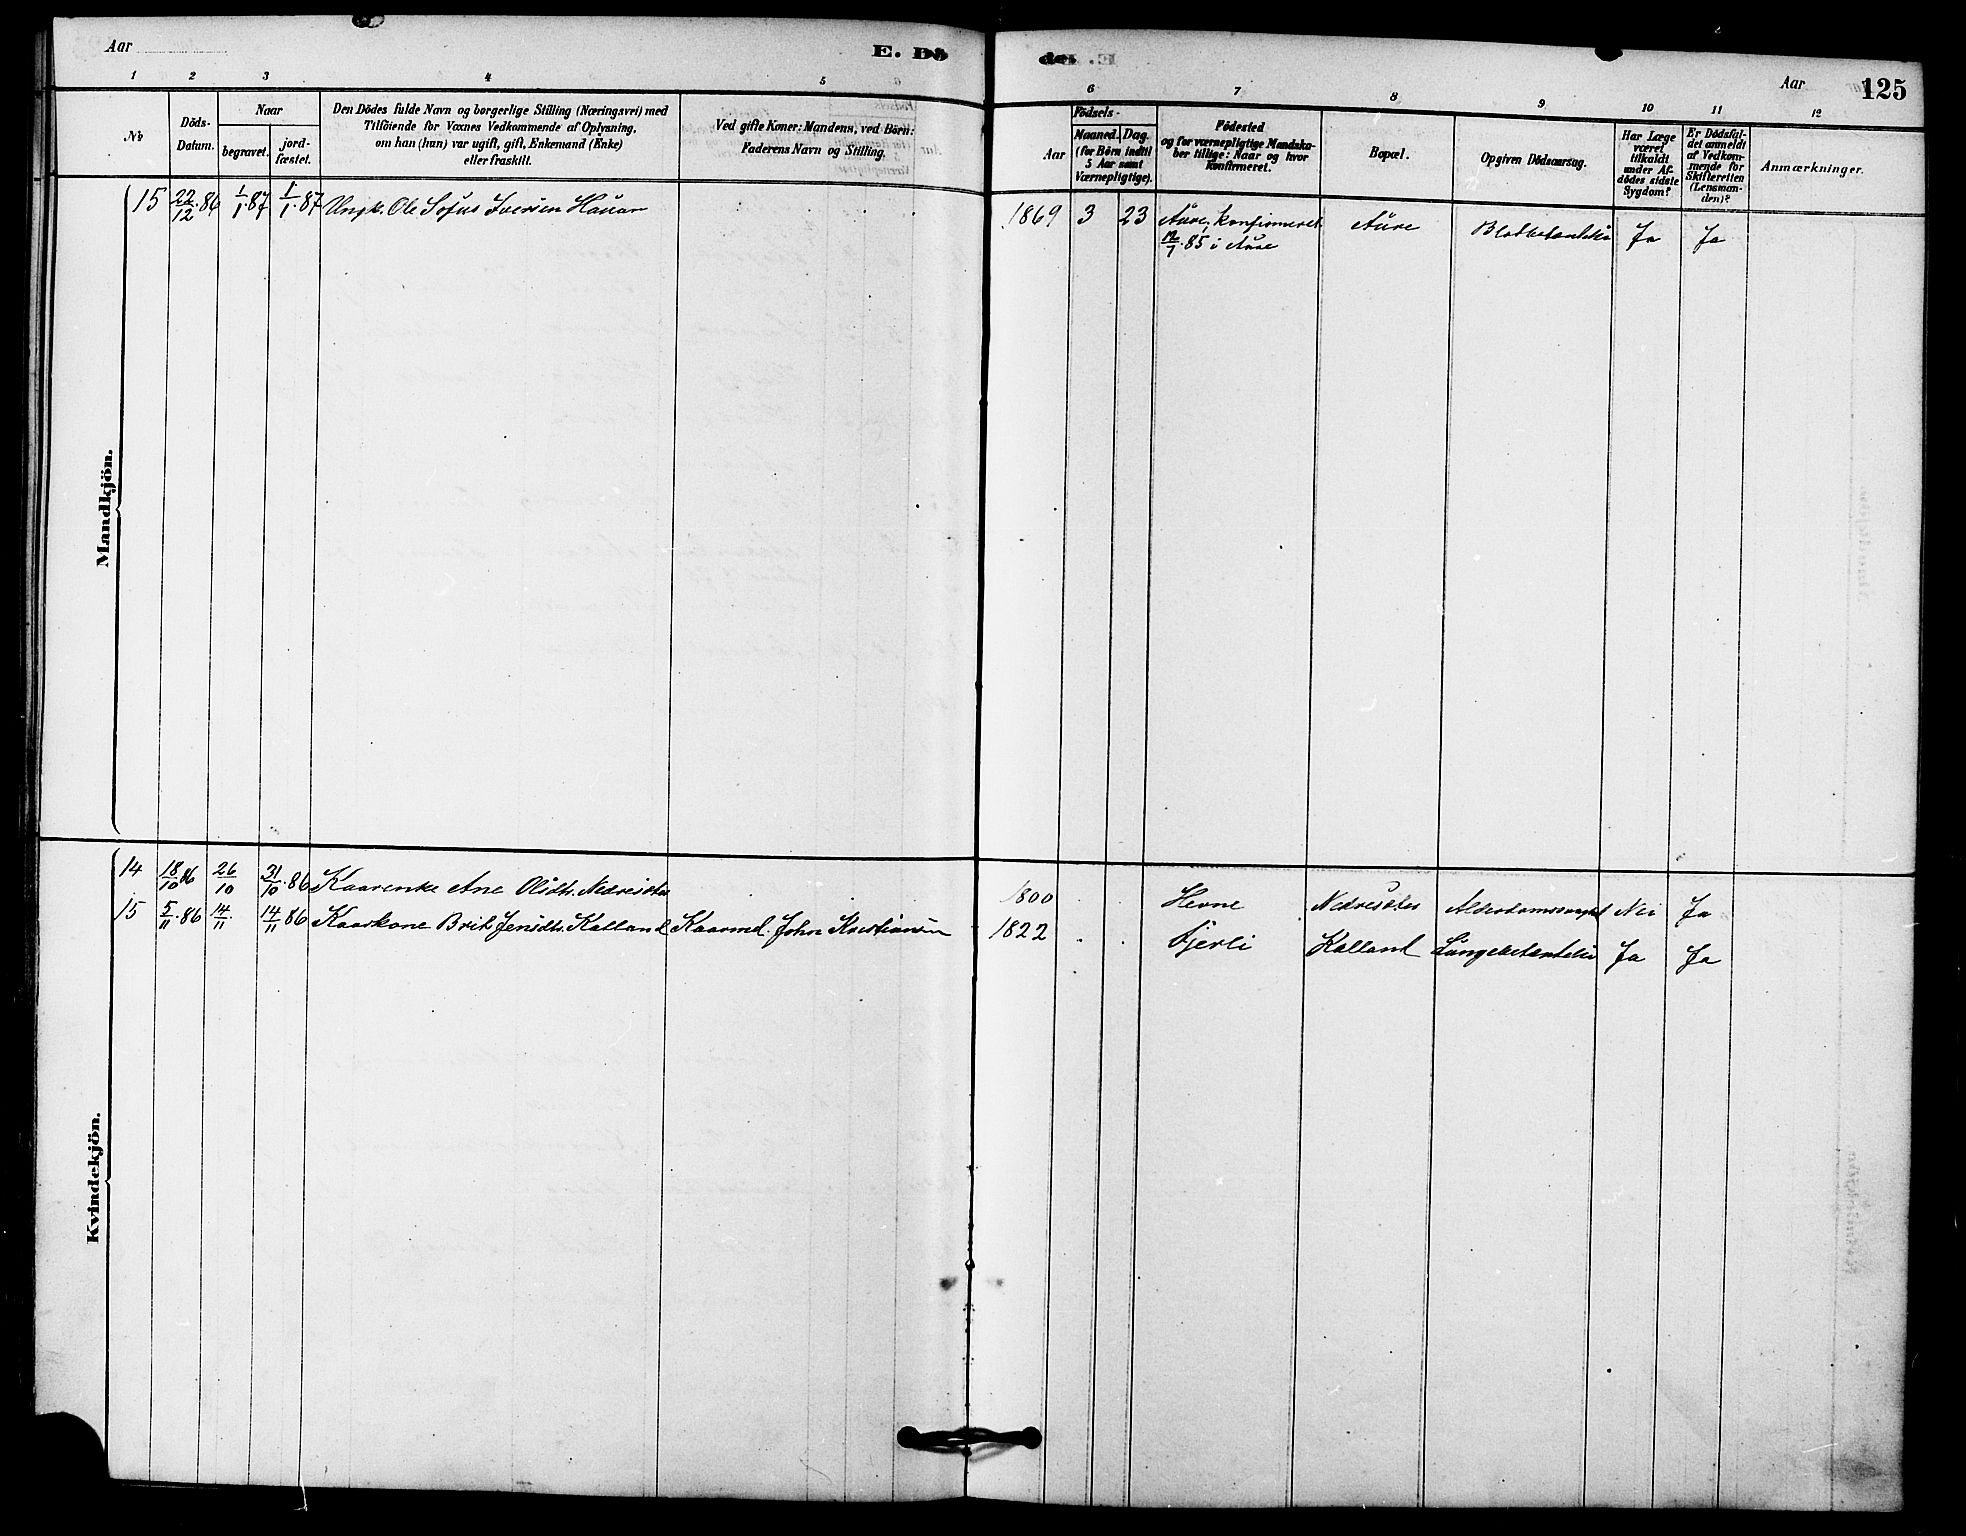 Aar
E. Dö
de.
Aar
125
1 2 3 4 5 6 7 8 9 10 11 12
No
Döds-
Datum.
Naar
begravet.
jord-
fæstet.
Den Dödes fulde Navn og borgerlige Stilling (Næringsvei) med
Tilföiende for Voxnes Vedkommende af Oplysning,
om han (hun) var ugift, gift, Enkemand (Enke)
eller fraskilt.
Ved gifte Koner: Mandens, ved Börn:
Faderens Navn og Stilling.
Födsels-
Aar
Maaned.
Dag.
(for Börn indtil
5 Aar samt
Værnepligtige).
Födested
og for værnepligtige Mandska-
ber tillige: Naar og hvor
konfirmeret.
Bopæl.
Opgiven Dödsaarsag.
Har Læge
været
tilkaldt
under Af-
dödes sidste
Sygdom?
Er Dödsfal-
det anmeldt
af Vedkom-
mende for
Skifteretten
(Lensman-
den)?
Anmærkninger.
Mandkjön.
15 22/12.86 1/1.87 1/1.87 Ungk. Ole Sofus Iversen 1869 3 23 Aure, konfirmeret Aure Ja Ja
12/7.85 i Aure
Kvindekjön.
14 18/10 86 26/10 31/10.86 Kaarenke Ane Olsdtr. 1800 Hevne Nei Ja
15 5/11.86 14/11. 14/11 86 Kaarkone Brit Jensdtr. Kalland Kaarmd. John Kristiansen 1822 Kalland Ja Ja